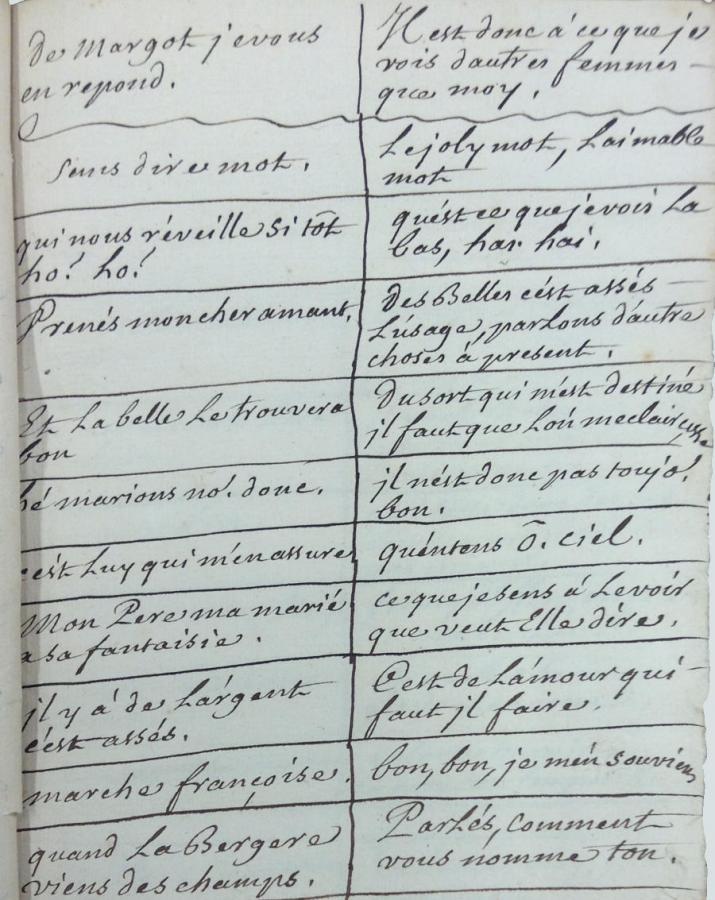 de Margot je vous
en repond.
sans dire mot.
qui nous réveille si tôt
ho! ho!
Prenés mon cher amant.
Et La belle Le trouvera
bon
hé marions no'. donc.
c'est Luy qui m'en assure
Mon Pere ma marié
a sa fantaisie.
il y á de L'argent
c'est assés.
marche françoise.
quand La Bergere
viens des champs.
Il est donc á ce que je
vois dautres femmes
que moy.
Le joly mot, Laimable
mot
qu'est ce que je vois La
bas, hai hai.
des Belles c'ést assés
L'úsage, parlons d'autre
choses á present.
Du sort qui m'est destiné
il faut que L'on m'eclaircisse
il n'ést donc pas toujo'.
bon.
qu'éntens ô. ciel.
ce que je sens á Le voir
que veut Elle dire.
C'est de L'ámour qui
faut il faire.
bon, bon, je m'en souviens
Parlés, comment
vous nomme ton.